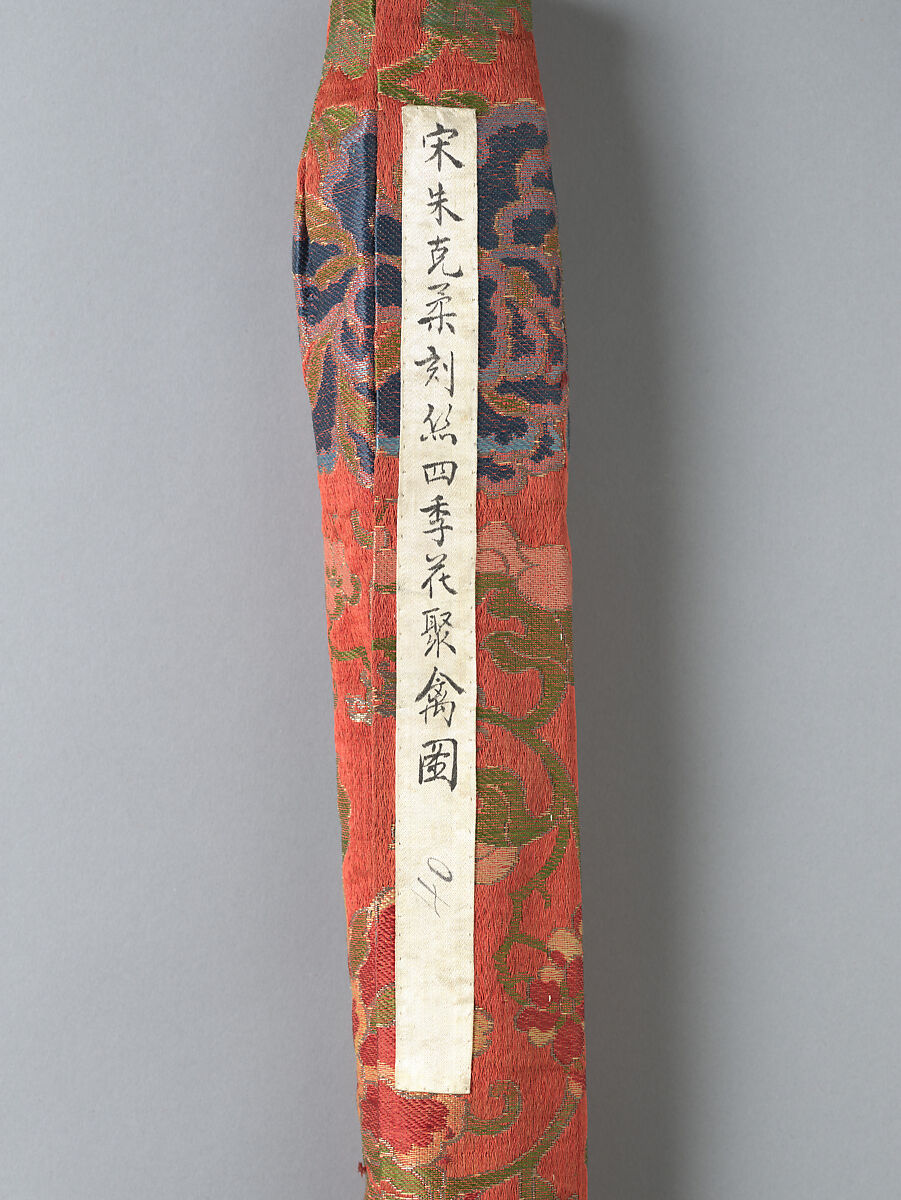 宋朱克柔刻丝四季花聚禽圖
40